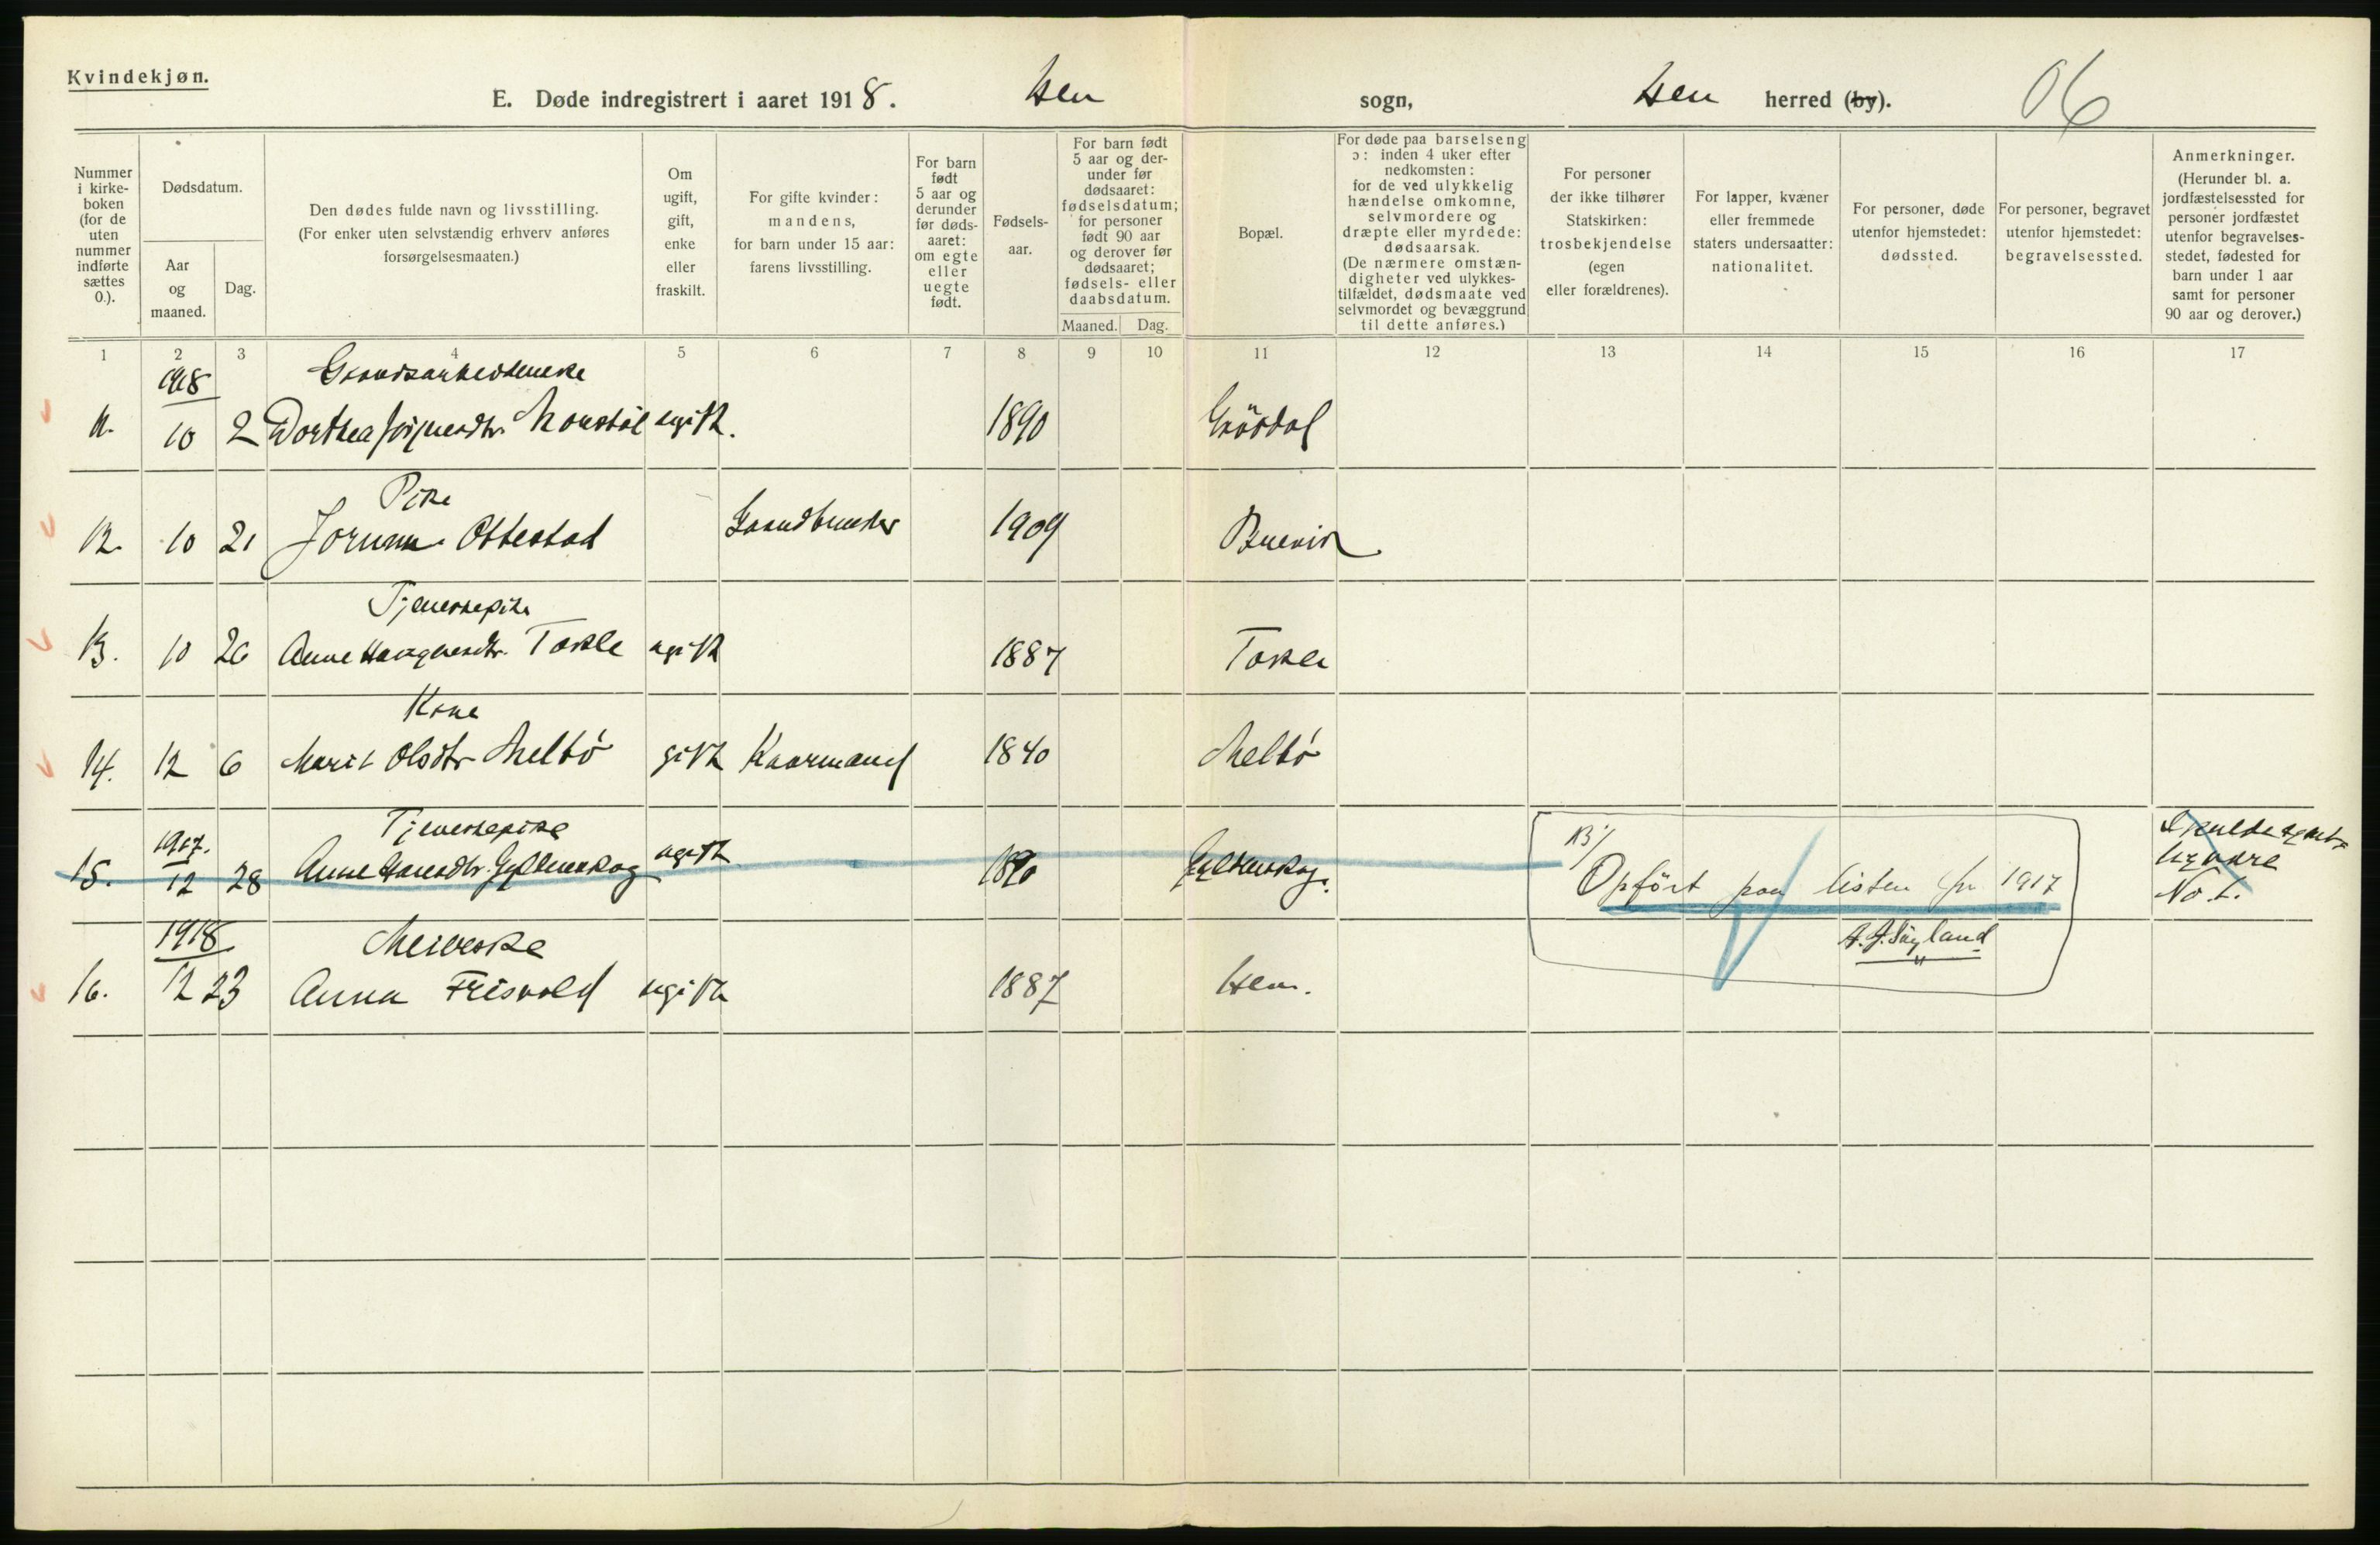 Kvindekjøn.
E. Døde indregistrert i aaret 1918. Hen sogn, Hen herred (by).
06
Nummer i kirkeboken (for de uten nummer indførte sættes 0.).
Dødsdatum.
Aar og maaned.
Dag.
Den dødes fulde navn og livsstilling.
(For enker uten selvstændig erhverv anføres forsørgelsesmaaten.)
Om ugift, gift, enke eller fraskilt.
For gifte kvinder: mandens, for barn under 15 aar: farens livsstilling.
For barn født 5 aar og derunder før dødsaaret: om egte eller uegte født.
Fødselsaar.
For barn født 5 aar og derunder før dødsaaret: fødselsdatum; for personer født 90 aar og derover før dødsaaret; fødsels- eller daabsdatum.
Maaned.
Dag.
Bopæl.
For døde paa barselseng ɔ: inden 4 uker efter nedkomsten: for de ved ulykkelig hændelse omkomne, selvmordere og dræpte eller myrdede: dødsaarsak.
(De nærmere omstændigheter ved ulykkestilfældet, dødsmaate ved selvmordet og bevæggrund til dette anføres.)
For personer der ikke tilhører Statskirken: trosbekjendelse (egen eller forældrenes).
For lapper, kvæner eller fremmede staters undersaatter: nationalitet.
For personer, døde utenfor hjemstedet: dødssted.
For personer, begravet utenfor hjemstedet: begravelsessted.
Anmerkninger.
(Herunder bl. a. jordfæstelsessted for personer jordfæstet utenfor begravelsesstedet, fødested for barn under 1 aar samt for personer 90 aar og derover.)
1 2 3 4 5 6 7 8 9 10 11 12 13 14 15 16 17
1918 Gaardsarbeiderske
11. 10 2 Dorthea ugift. 1890 Grøvdal
Pike
12. 10 21 Jorunn Ottestad Gaardbruker 1909 Buevik
Tjenestepike
13. 10 26 Anne Tokle ugift 1887 Tokle
Kone
14. 12 6 Marit Olsdtr Melbö gift Kaarmand 1840 Melbö
1917. Tjenestepike
15. 12 28 Anne Hansdtr. Gyldenskog ugift 1890 Gyldenskog.
No 1.
Opført paa listen for 1917
1918 Meierske
16. 12 23 Anna Frisvold ugift 1887 Hen.